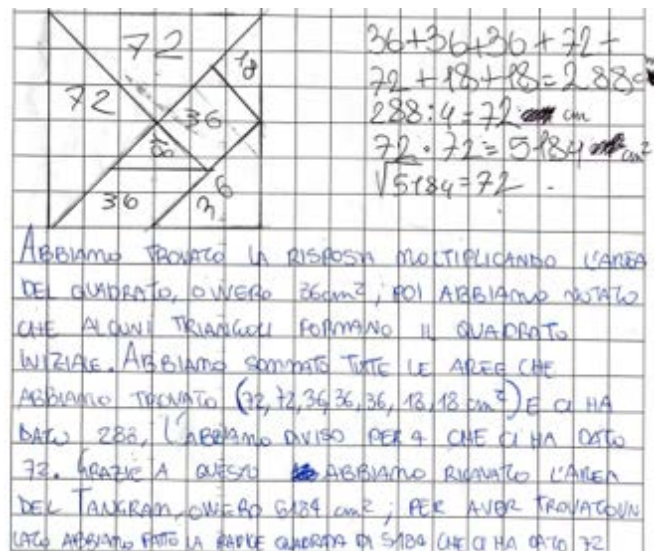 72
72
18
36
18
36
36
36+36+36+72+
72+18+18=288
288:4=72 cm
72·72=5184 cm²
√5184=72
ABBIAMO TROVATO LA RISPOSTA MOLTIPLICANDO L'AREA
DEL QUADRATO, OVVERO 36cm², POI ABBIAMO NOTATO
CHE ALCUNI TRIANGOLI FORMANO IL QUADRATO
INIZIALE. ABBIAMO SOMMATO TUTTE LE AREE CHE
ABBIAMO TROVATO (72,72,36,36,36,18,18 cm²) E CI HA
DATO 288, L'ABBIAMO DIVISO PER 4 CHE CI HA DATO
72. GRAZIE A QUESTO ABBIAMO RICAVATO L'AREA
DEL TANGRAM, OVVERO 5184 cm², PER AVER TROVATO UN
LATO ABBIAMO FATTO LA RADICE QUADRATA DI 5184 CHE CI HA DATO 72